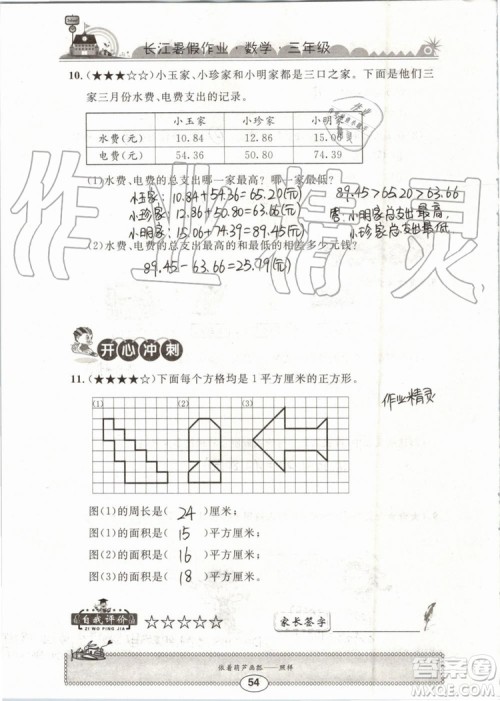 长江暑假作业·数学·三年级
10.(★★★☆☆)小玉家、小珍家和小明家都是三口之家。下面是他们三
家三月份水费、电费支出的记录。
小玉家 小珍家 小明家
水费(元) 10.84 12.86 15.06
电费(元) 54.36 50.80 74.39
(1)水费、电费的总支出哪一家最高?哪一家最低?
小玉家:10.84+54.36=65.20(元)
小珍家:12.86+50.80=63.66(元)
小明家:15.06+74.39=89.45(元)
89.45>65.20>63.66
答:小明家总支出最高,
小珍家总支出最低.
(2)水费、电费的总支出最高的和最低的相差多少元钱?
89.45-63.66=25.79(元)
开心冲刺
11.(★★★★☆)下面每个方格均是1平方厘米的正方形。
作业精灵
(1) (2) (3)
图(1)的周长是( 24 )厘米;
图(1)的面积是( 15 )平方厘米;
图(2)的面积是( 16 )平方厘米;
图(3)的面积是( 18 )平方厘米。
自我评价
ZI WO PING JIA
☆☆☆☆☆
家长签字
依着葫芦画瓢——照样
54
作业精灵
答案圈
MXQE.COM